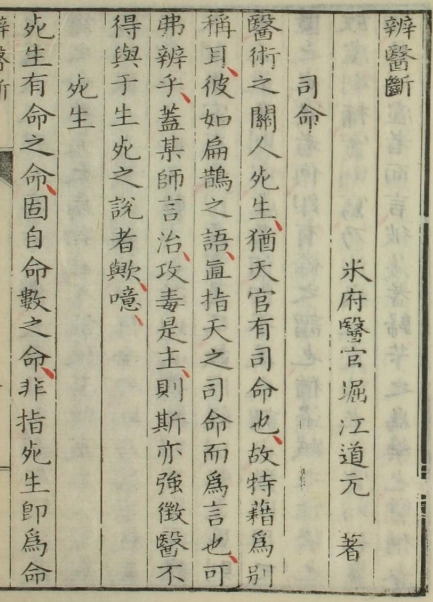 辨醫斷
米府醫官堀江道元 著
司命
醫術之關人死生猶天官有司命也故特藉爲別
稱耳彼如扁鵲之語直指天之司命而爲言也可
弗辨乎蓋某師言治攻毒是主則斯亦強徵醫不
得與于生死之說者歟噫
死生
死生有命之命固自命數之命非指死生卽爲命